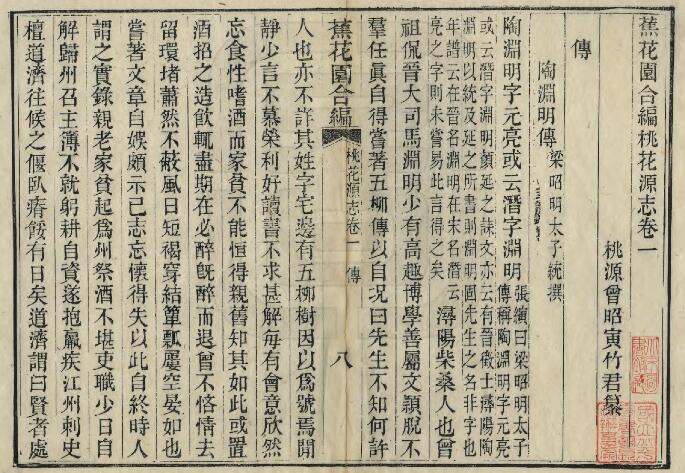 蕉花園合編桃花源志卷一
桃源曾昭寅竹君纂
傳
陶淵明傳 梁昭明太子統撰
陶淵明字元亮或云潛字淵明
張縯曰梁昭明太子
傳稱陶淵明字元亮
或云潛字淵明顏延之誄文亦云有晉徵士潯陽陶
淵明以統及延之所書則淵明固先生之名非字也
年譜云在晉名淵明在宋名潛元
亮之字則未嘗易此言得之矣
潯陽柴桑人也曾
祖侃晉大司馬淵明少有高趣博學善屬文穎脫不
羣任眞自得嘗著五柳傳以自况曰先生不知何許
蕉花園合編 桃花源志卷一 傳 八
人也亦不詳其姓字宅邊有五柳樹因以爲號焉閒
靜少言不慕榮利好讀書不求甚解每有會意欣然
忘食性嗜酒而家貧不能恒得親舊知其如此或置
酒招之造飲輒盡期在必醉旣醉而退曾不悋情去
留環堵蕭然不蔽風日短褐穿結簞瓢屢空晏如也
嘗著文章自娛頗示己志忘懷得失以此自終時人
謂之實錄親老家貧起爲州祭酒不堪吏職少日自
解歸州召主簿不就躬耕自資遂抱羸疾江州刺史
檀道濟往候之偃臥瘠餒有日矣道濟謂曰賢者處